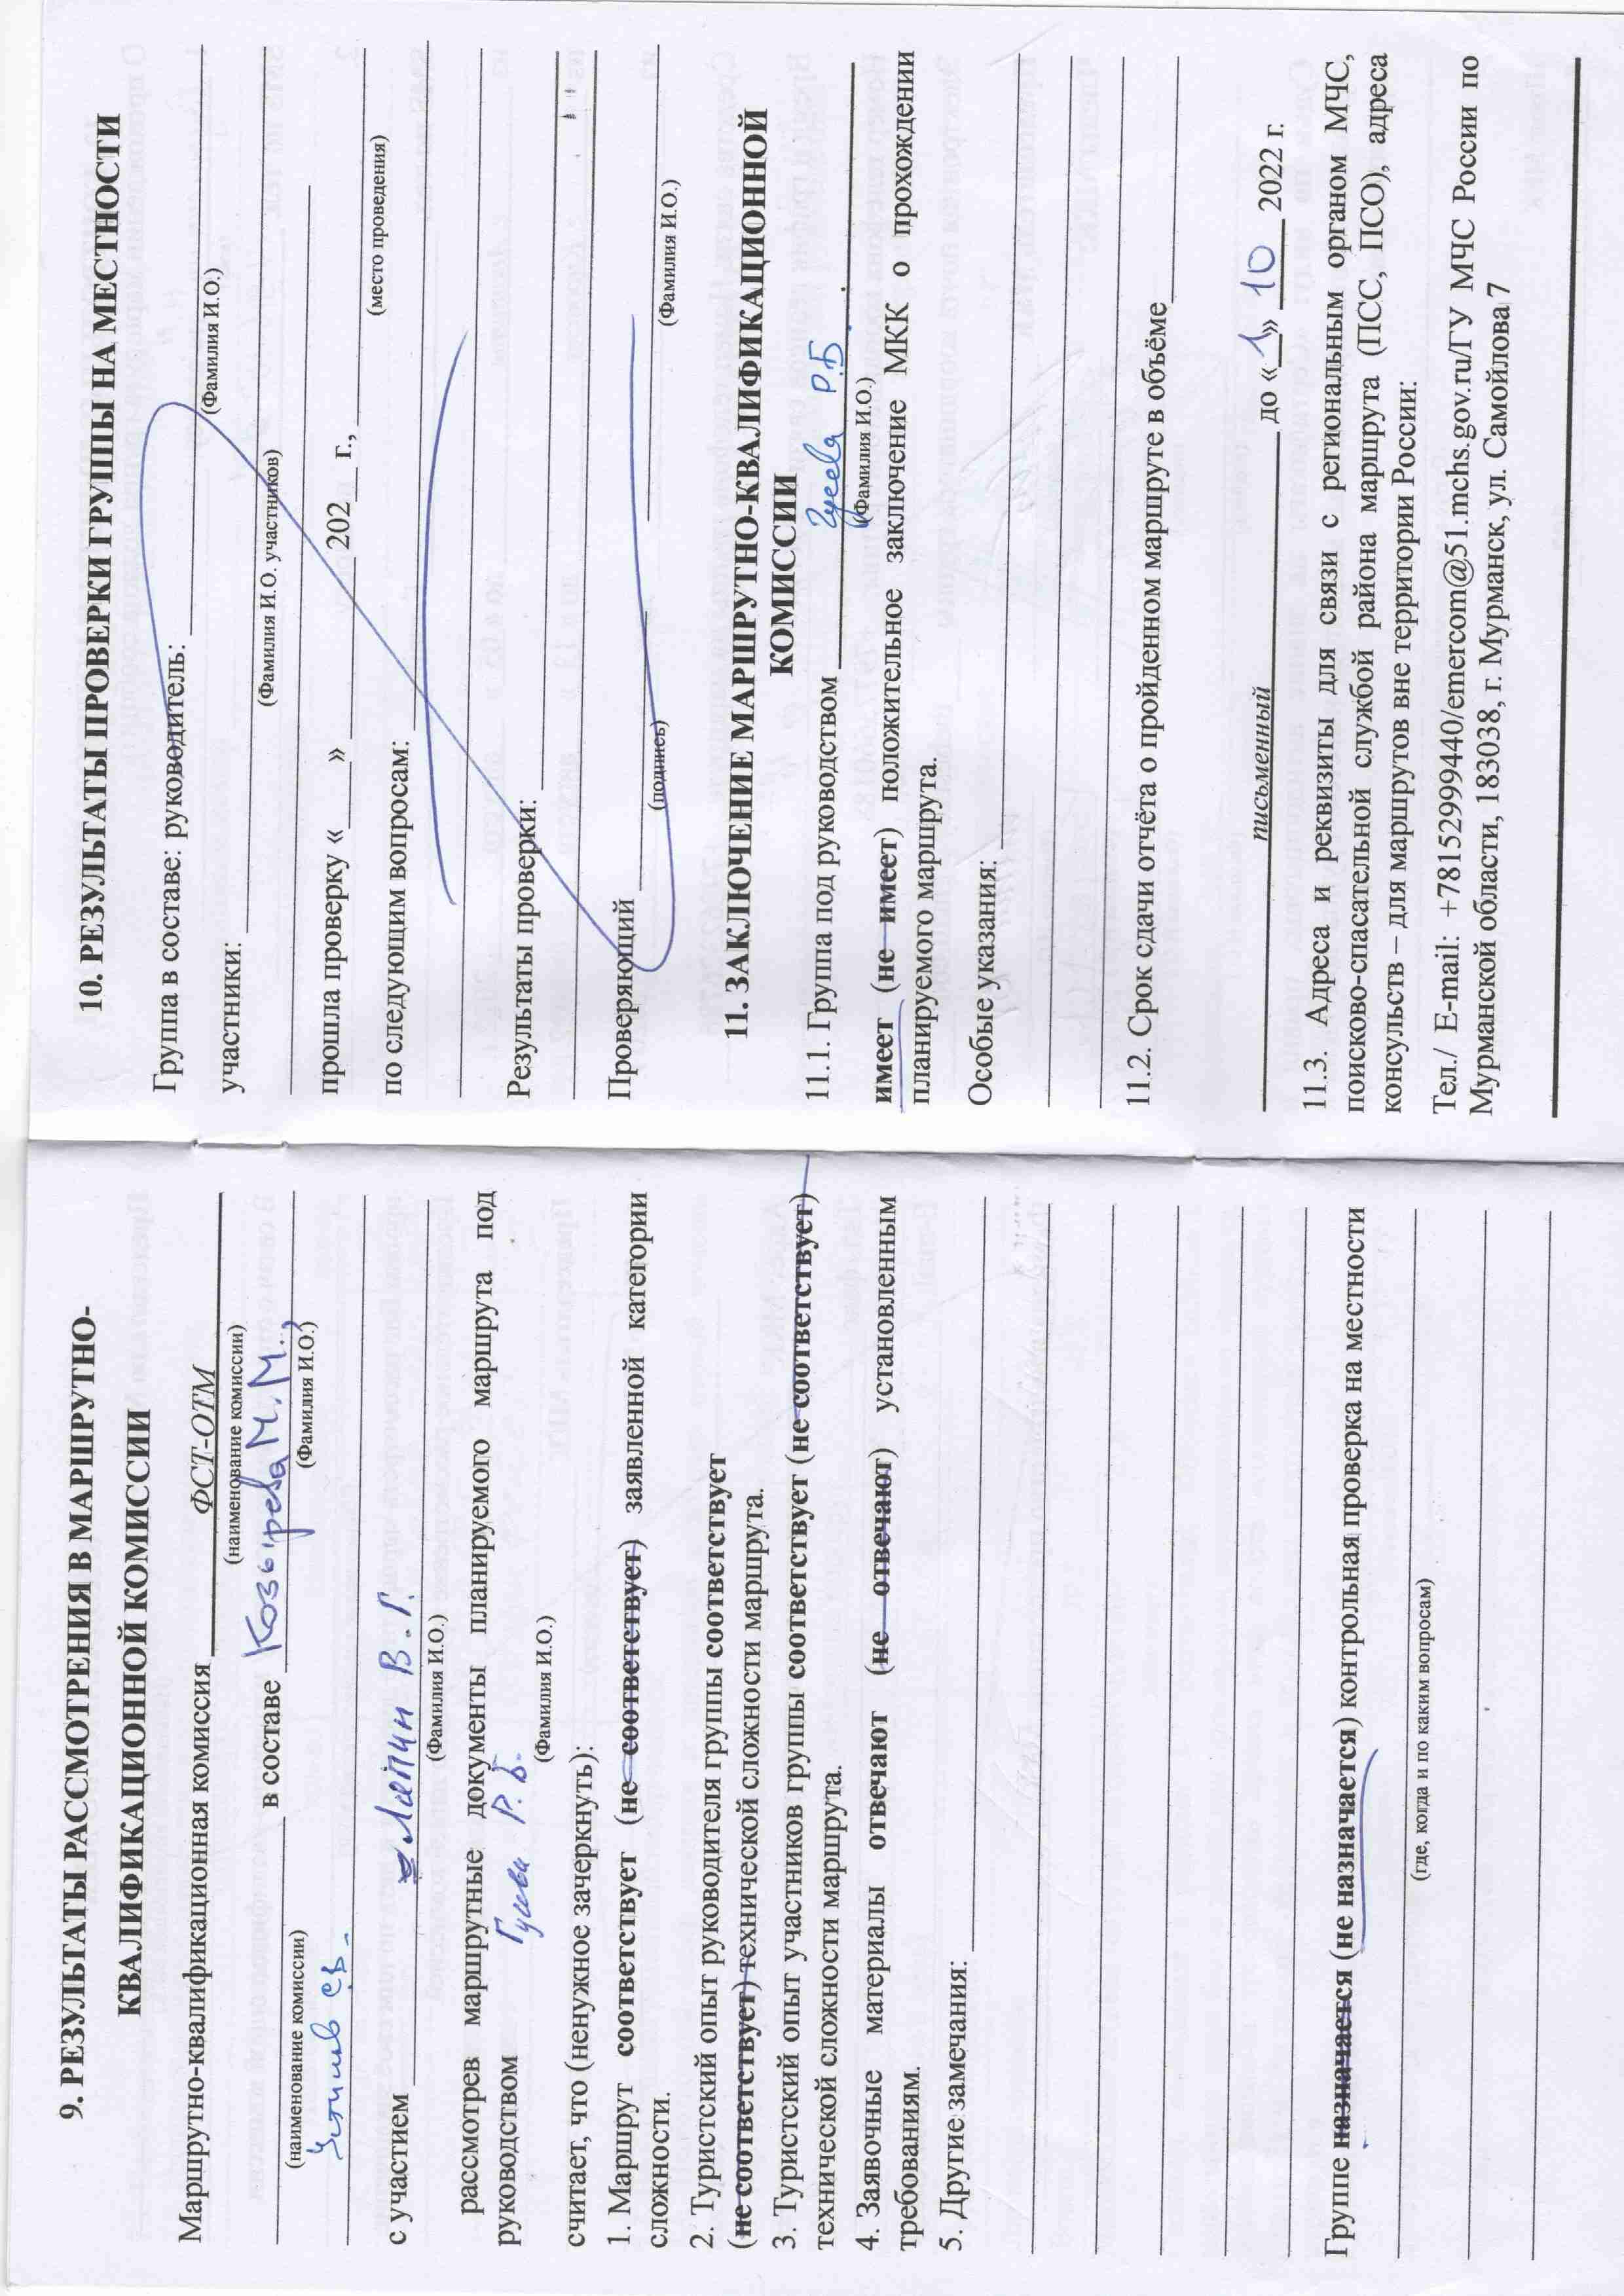 9. РЕЗУЛЬТАТЫ РАССМОТРЕНИЯ В МАРШРУТНО-
КВАЛИФИКАЦИОННОЙ КОМИССИИ
Маршрутно-квалификационная комиссия ФСТ-ОТМ
(наименование комиссии)
в составе Козырева М.М.,
(наименование комиссии) (Фамилия И.О.)
с участием Лапин В.Г.
(Фамилия И.О.)
рассмотрев маршрутные документы планируемого маршрута под
руководством Гусева Р.Б.
(Фамилия И.О.)
считает, что (ненужное зачеркнуть):
1. Маршрут соответствует (не соответствует) заявленной категории
сложности.
2. Туристский опыт руководителя группы соответствует
(не соответствует) технической сложности маршрута.
3. Туристский опыт участников группы соответствует (не соответствует)
технической сложности маршрута.
4. Заявочные материалы отвечают (не отвечают) установленным
требованиям.
5. Другие замечания:
Группе назначается (не назначается) контрольная проверка на местности
(где, когда и по каким вопросам)
10. РЕЗУЛЬТАТЫ ПРОВЕРКИ ГРУППЫ НА МЕСТНОСТИ
Группа в составе: руководитель:
(Фамилия И.О.)
участники:
(Фамилия И.О. участников)
прошла проверку «___» ______ 202__ г.,
(место проведения)
по следующим вопросам:
Результаты проверки:
Проверяющий
(подпись) (Фамилия И.О.)
11. ЗАКЛЮЧЕНИЕ МАРШРУТНО-КВАЛИФИКАЦИОННОЙ
КОМИССИИ
11.1. Группа под руководством Гусева Р.Б
(Фамилия И.О.)
имеет (не имеет) положительное заключение МКК о прохождении
планируемого маршрута.
Особые указания:
11.2. Срок сдачи отчёта о пройденном маршруте в объёме
письменный до «1» 10 2022 г.
11.3. Адреса и реквизиты для связи с региональным органом МЧС,
поисково-спасательной службой района маршрута (ПСС, ПСО), адреса
консульств – для маршрутов вне территории России:
Тел./ E-mail: +78152999440/emercom@51.mchs.gov.ru/ГУ МЧС России по
Мурманской области, 183038, г. Мурманск, ул. Самойлова 7